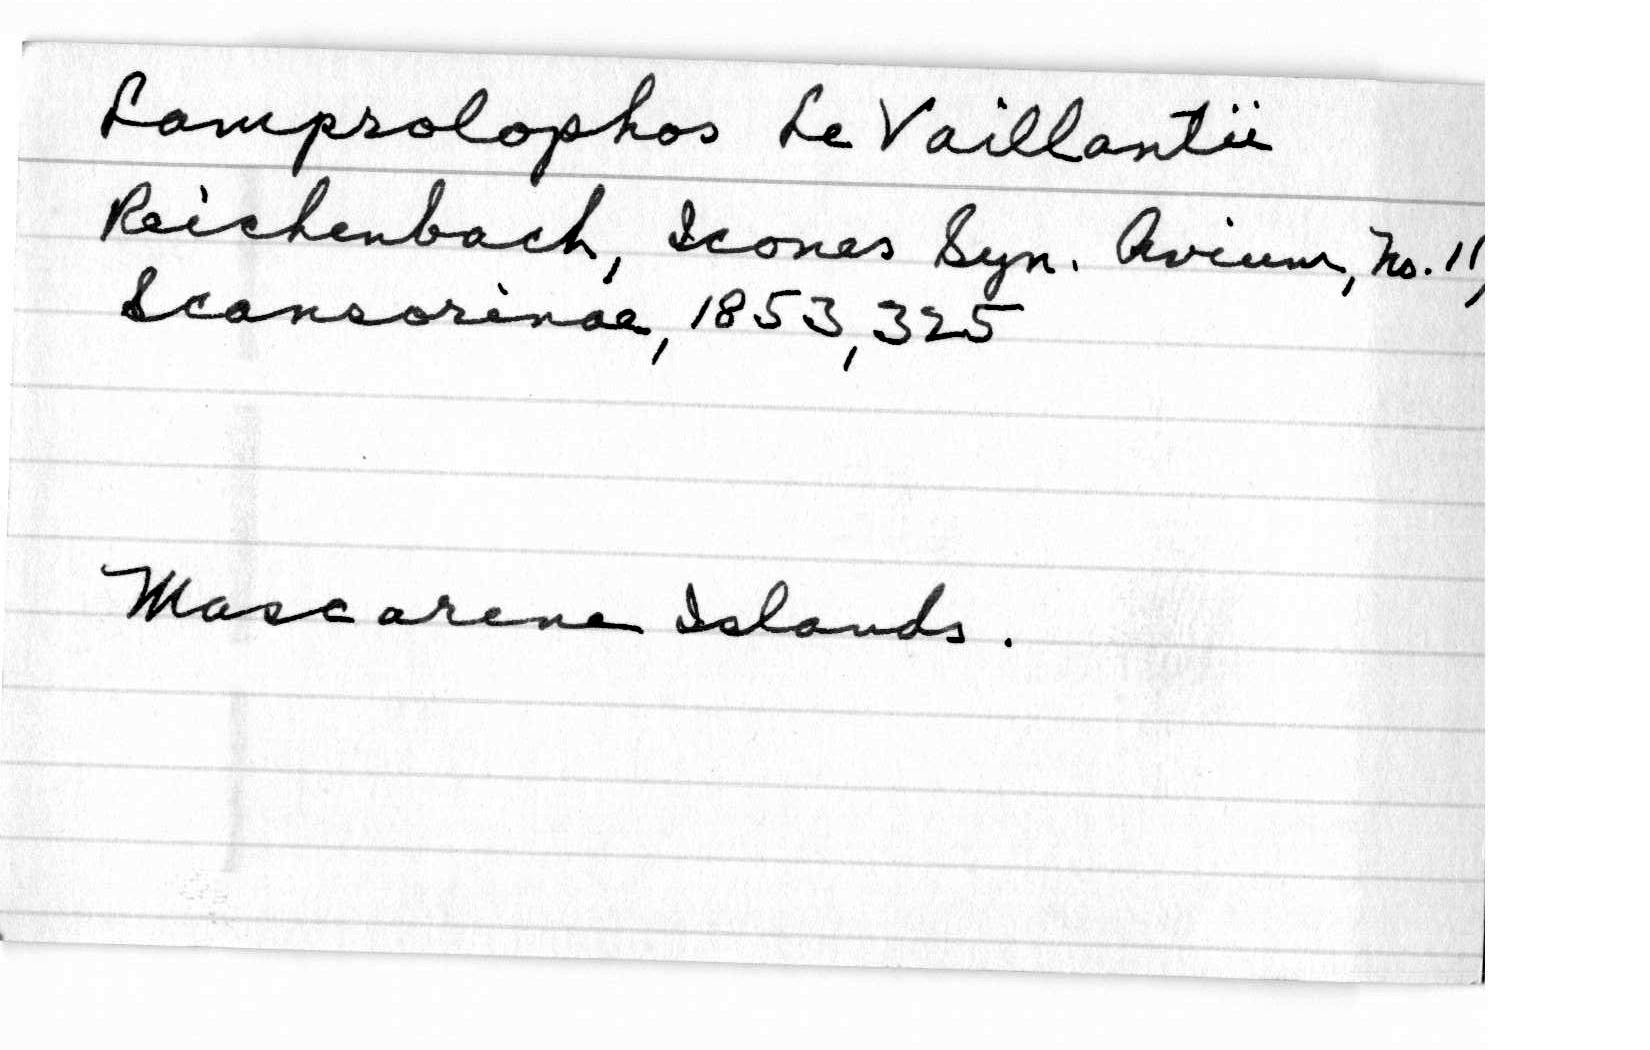 Lamprolophos Le Vaillantii
Reichenbach, Icones Syn. Avium, No. 11,
Scansorinae, 1853, 325
Mascarene Islands.